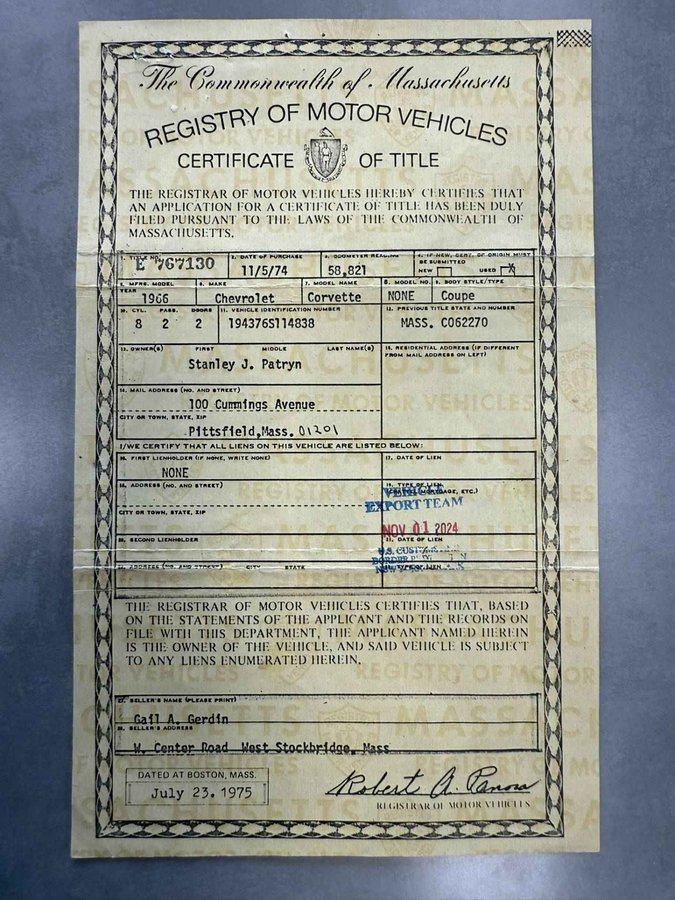 The Commonwealth of Massachusetts
REGISTRY OF MOTOR VEHICLES
CERTIFICATE OF TITLE
THE REGISTRAR OF MOTOR VEHICLES HEREBY CERTIFIES THAT
AN APPLICATION FOR A CERTIFICATE OF TITLE HAS BEEN DULY
FILED PURSUANT TO THE LAWS OF THE COMMONWEALTH OF
MASSACHUSETTS.
1. TITLE NO. 2. DATE OF PURCHASE 3. ODOMETER READING 4. IF NEW, CERT. OF ORIGIN MUST
BE SUBMITTED
E 767130 11/5/74 58,821 NEW USED X
5. MFRS. MODEL YEAR 6. MAKE 7. MODEL NAME 8. MODEL NO. 9. BODY STYLE/TYPE
1966 Chevrolet Corvette NONE Coupe
10. CYL. PASS. DOORS 11. VEHICLE IDENTIFICATION NUMBER 12. PREVIOUS TITLE STATE AND NUMBER
8 2 2 194376S114838 MASS. C062270
13. OWNER(S) FIRST MIDDLE LAST NAME(S) 15. RESIDENTIAL ADDRESS (IF DIFFERENT
FROM MAIL ADDRESS ON LEFT)
Stanley J. Patryn
14. MAIL ADDRESS (NO. AND STREET)
100 Cummings Avenue
CITY OR TOWN, STATE, ZIP
Pittsfield,Mass. 01201
I/WE CERTIFY THAT ALL LIENS ON THIS VEHICLE ARE LISTED BELOW:
16. FIRST LIENHOLDER (IF NONE, WRITE NONE) 17. DATE OF LIEN
NONE
18. ADDRESS (NO. AND STREET) 19. TYPE OF LIEN
VEHICLE
EXPORT TEAM
CITY OR TOWN, STATE, ZIP
NOV 01 2024
20. SECOND LIENHOLDER 21. DATE OF LIEN
U.S. CUSTOMS
BORDER
ADDRESS (NO. AND STREET) CITY STATE TYPE OF LIEN
THE REGISTRAR OF MOTOR VEHICLES CERTIFIES THAT, BASED
ON THE STATEMENTS OF THE APPLICANT AND THE RECORDS ON
FILE WITH THIS DEPARTMENT, THE APPLICANT NAMED HEREIN
IS THE OWNER OF THE VEHICLE, AND SAID VEHICLE IS SUBJECT
TO ANY LIENS ENUMERATED HEREIN.
SELLER'S NAME (PLEASE PRINT)
Gail A. Gerdin
SELLER'S ADDRESS
W. Center Road West Stockbridge, Mass
DATED AT BOSTON, MASS.
July 23, 1975
Robert A. Panora
REGISTRAR OF MOTOR VEHICLES